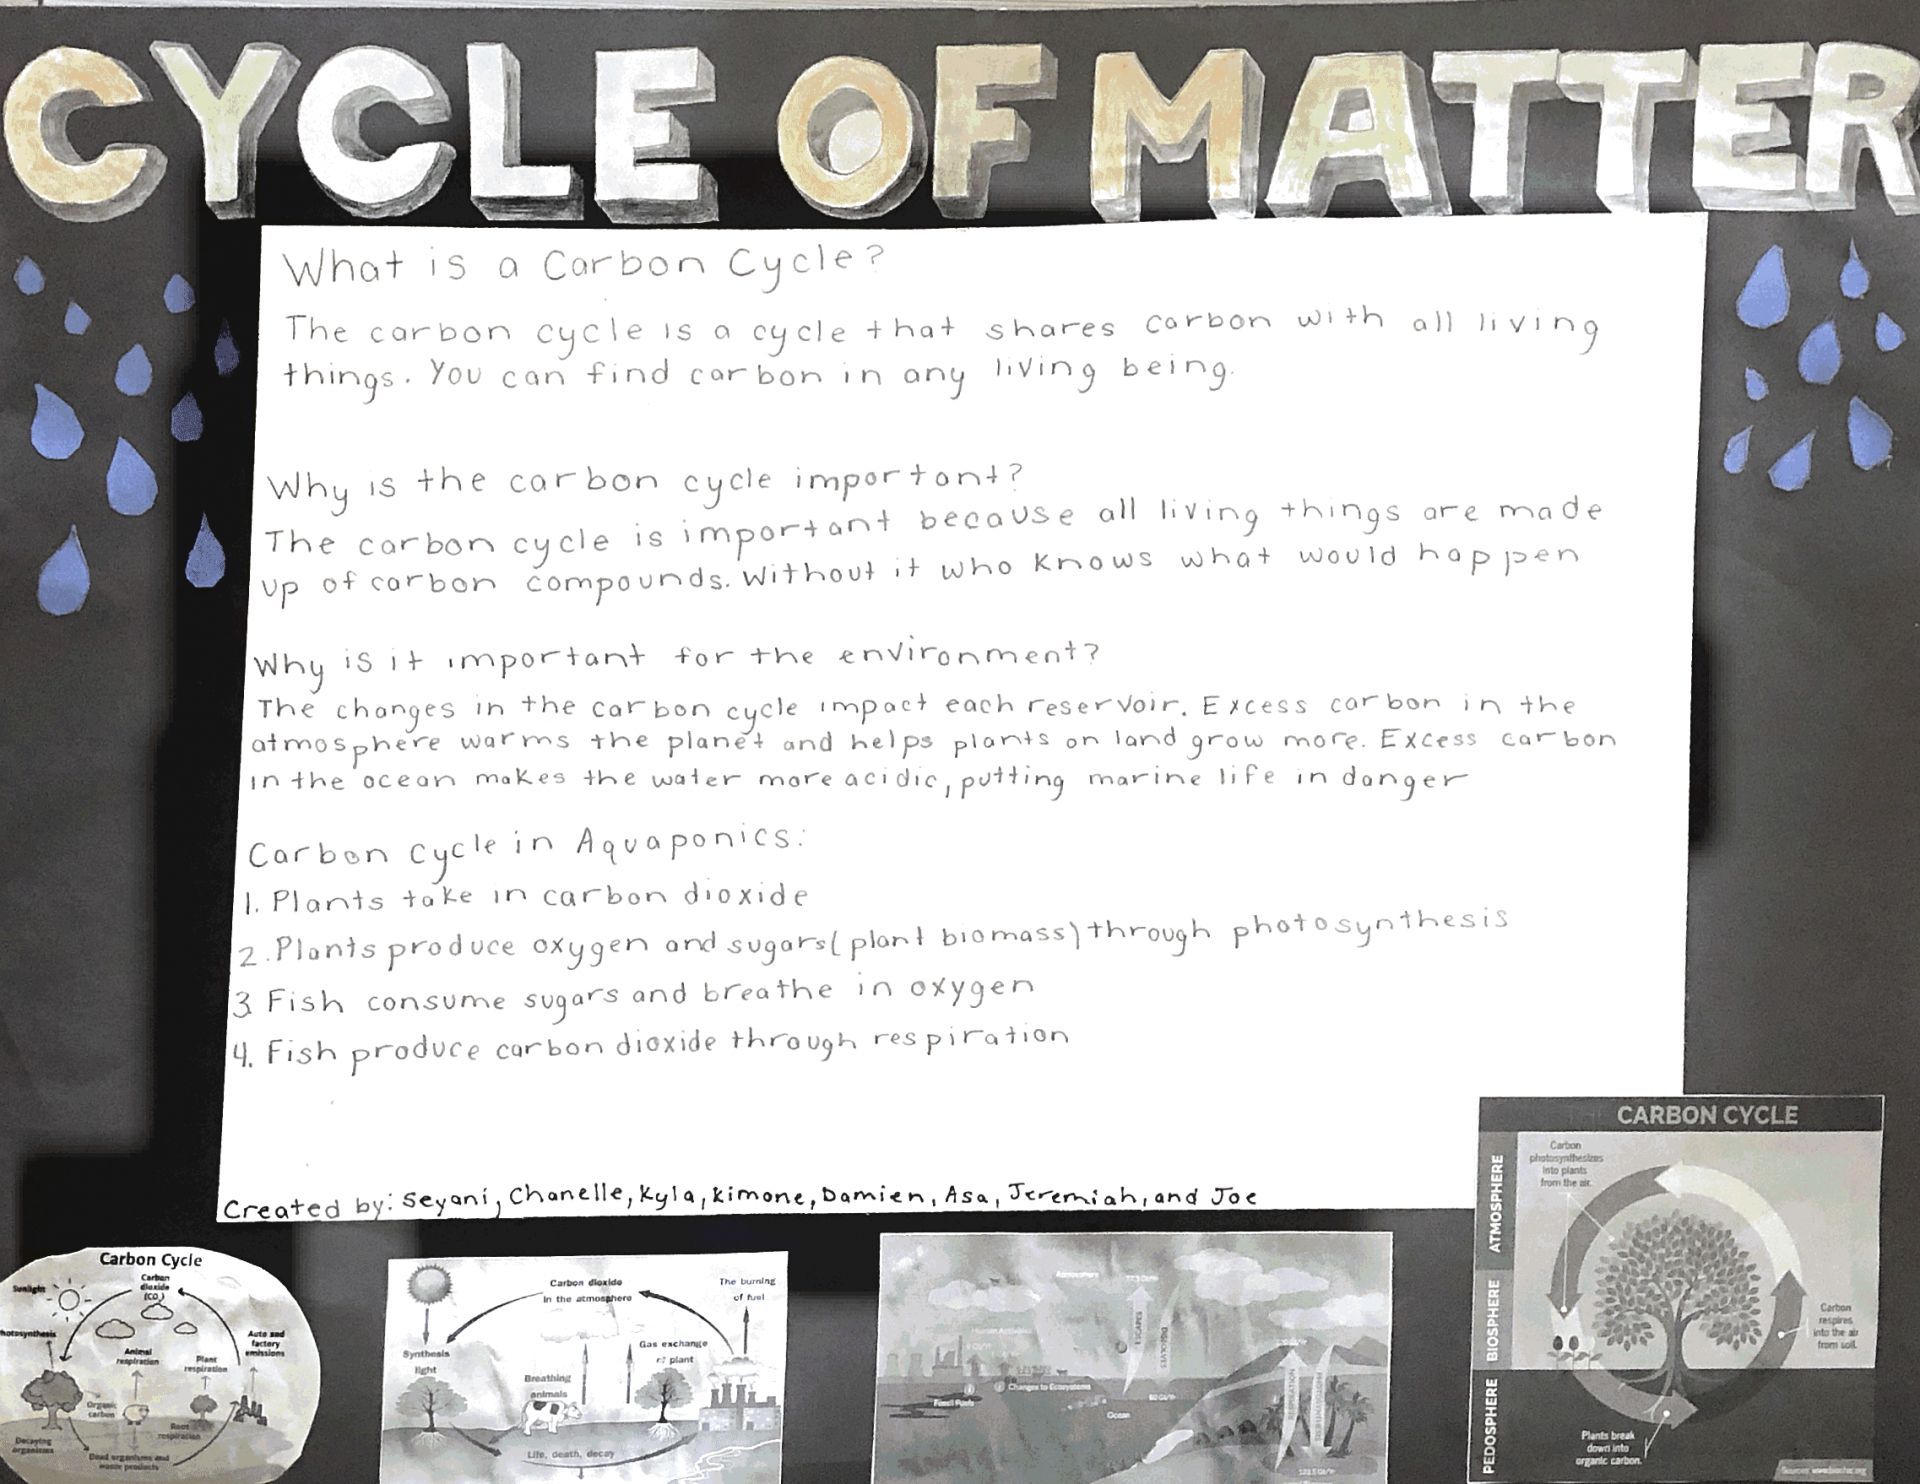 CYCLE OF MATTER
What is a Carbon Cycle?
The carbon cycle is a cycle that shares carbon with all living
things. You can find carbon in any living being.
Why is the carbon cycle important?
The carbon cycle is important because all living things are made
up of carbon compounds. Without it who knows what would happen
Why is it important for the environment?
The changes in the carbon cycle impact each reservoir. Excess carbon in the
atmosphere warms the planet and helps plants on land grow more. Excess carbon
in the ocean makes the water more acidic, putting marine life in danger
Carbon cycle in Aquaponics:
1. Plants take in carbon dioxide
2. Plants produce oxygen and sugars (plant biomass) through photosynthesis
3. Fish consume sugars and breathe in oxygen
4. Fish produce carbon dioxide through respiration
Created by: Seyani, Chanelle, Kyla, Kimone, Damien, Asa, Jeremiah, and Joe
Carbon Cycle
Sunlight
Carbon
dioxide
(CO2)
hotosynthesis
Animal
respiration
Plant
respiration
Auto and
factory
emissions
Organic
carbon
Root
respiration
Decaying
organisms
Dead organisms and
waste products
Carbon dioxide
in the atmosphere
The burning
of fuel
Synthesis
light
Gas exchange
of plant
Breathing
animals
Life, death, decay
Atmosphere
Changes to Ecosystems
Fossil Fuels
Ocean
ESCAPES
DISSOLVES
RESPIRATION
PHOTOSYNTHESIS
THE CARBON CYCLE
ATMOSPHERE
BIOSPHERE
PEDOSPHERE
Carbon
photosynthesizes
into plants
from the air.
Carbon
respires
into the air
from soil.
Plants break
down into
organic carbon.